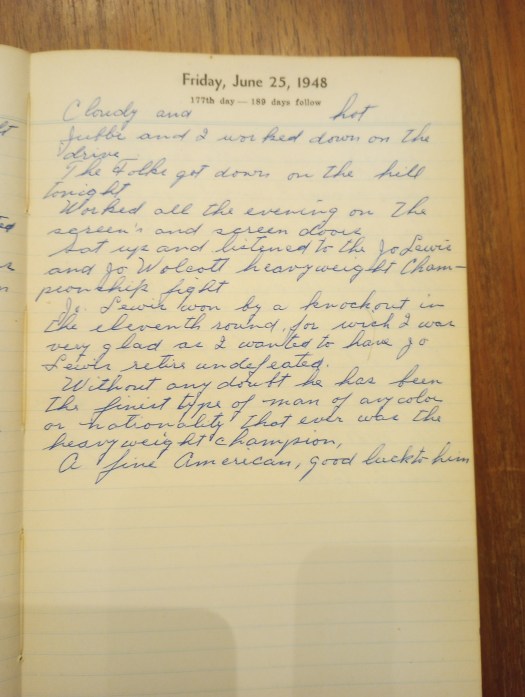 Friday, June 25, 1948
177th day — 189 days follow
Cloudy and hot
and I worked down on the
drive
The Folks got down on the hill
tonight
Worked all the evening on the
screen's and screen doors
Sat up and listened to the Jo Lewis
and Jo Wolcott heavyweight Cham-
pionship fight
Jo. Lewis won by a knockout in
the eleventh round, for wich I was
very glad as I wanted to have Jo
Lewis retire undefeated.
Without any doubt he has been
the finest type of man of any color
or nationality that ever was the
heavyweight champion,
A fine American, good luck to him